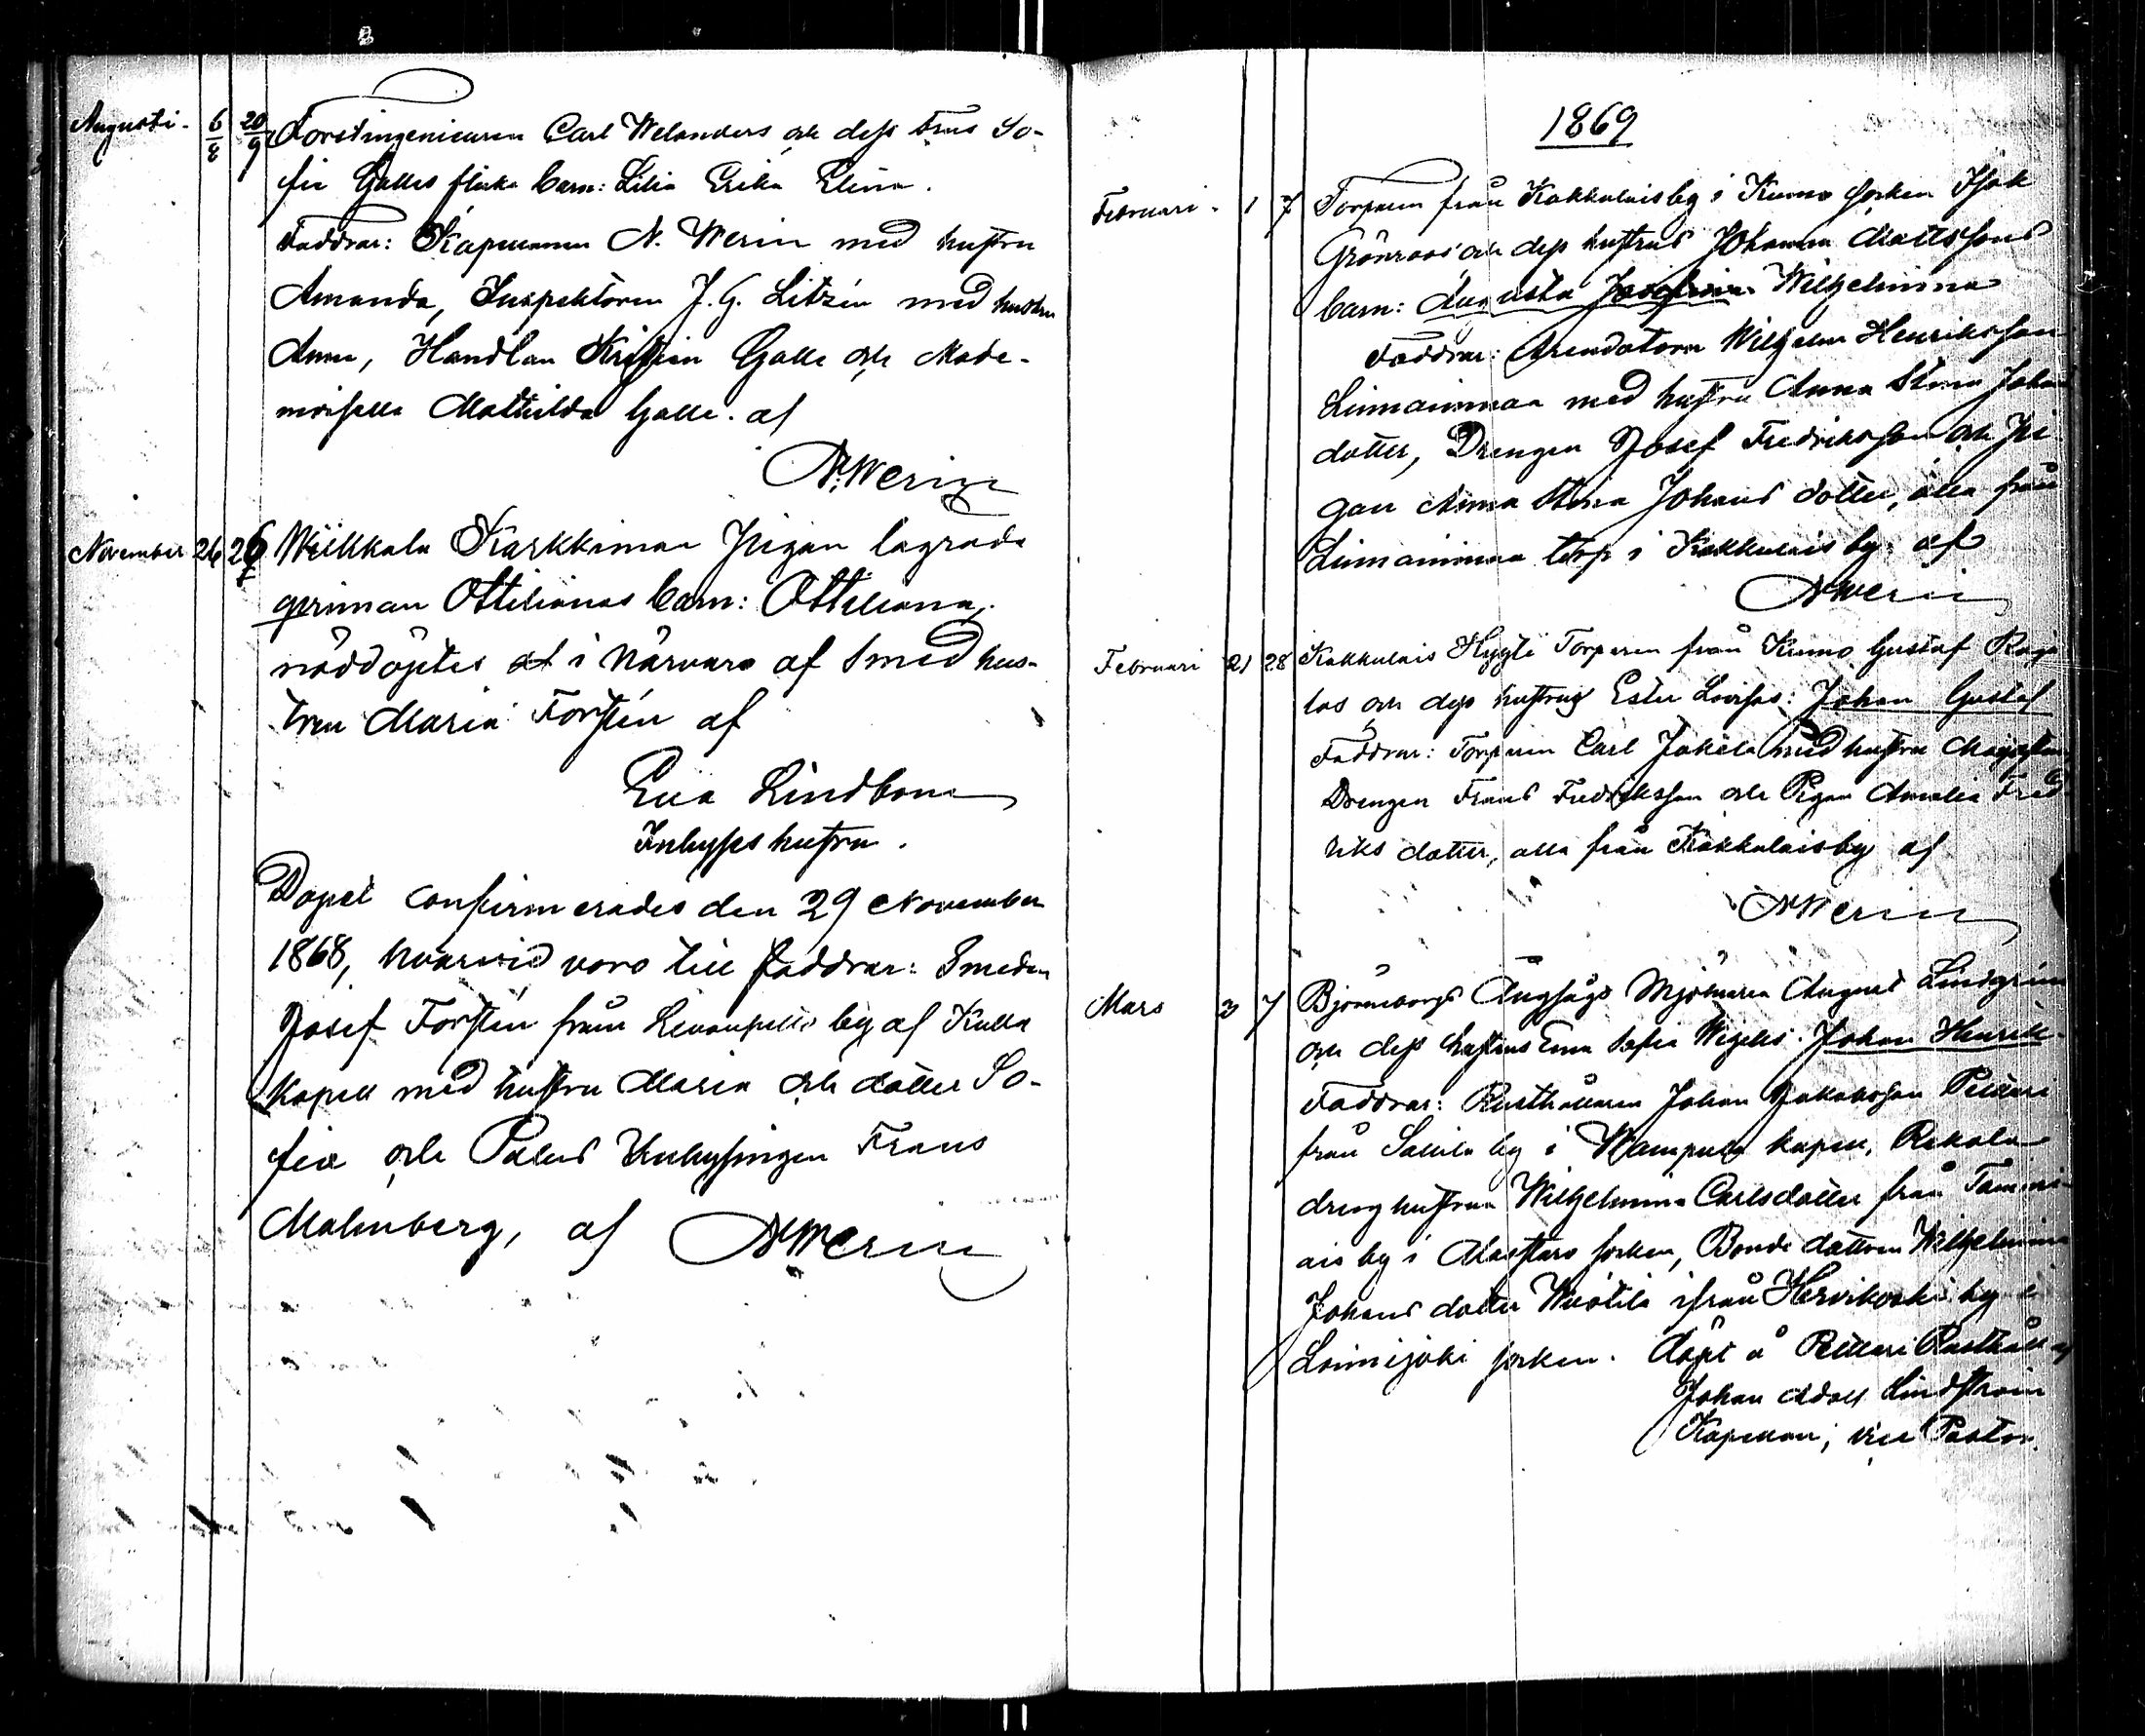 Augusti. 6/8 20/9 Forstingenieuren Carl Welanders och dess Frus So-
fie Galles flicke barn: Lilia Erika Elina.
Faddrar: Kapellanen N. Werin med hustru
Amanda, Inspektoren J. G. Litzén med hustru
Anna, Handlan Kristian Galle och Made-
moiselle Mathilda Galle. af
N. Werin
November 26 26 Wiikkala Karkkiman Pigan lagrada
Ottilianas barn: Ottiliana,
nöddöptes i närvaro af Smed hus-
trun Maria Forstén af
Eva Lindbom
Inhyses hustru.
Dopet confirmerades den 29 November
1868, hvarvid voro till faddrar: Smeden
Josef Forstén från by af Kulla
Kapell med hustru Maria och dotter So-
fia och Palus Inhysingen Frans
Malmberg, af N Werin
1869
Februari. 1 7 Torparen från Kakkulais by i Kumo socken Isak
Grönroos och dess hustrus Johanna Mattssons
barn: Augusta Josefina Wilhelmina
Faddrar: Arendatorn Wilhelm Henriksson
Linnainmaa med hustru Anna Stina Johans
dotter, Drengen Josef Fredriksson och Pi
gan Anna Stina Johans dotter, alla från
Linnainmaa torp i Kakkulais by. af
N Werin
Februari 21 28 Kakkulais Hygti Torparen från Kumo Gustaf
las och dess hustrus Ester Lovisas: Johan Gustaf
Faddrar: Torparen Carl Jakola med hustru
Drengen Frans Fredriksson och Pigan Amalia Fred
riks dotter, alla från Kakkulais by af
N Werin
Mars 3 7 Björneborgs Ångsågs Mjölnaren August Lindgrén
och dess hustrus Eva Sofia Wigells: Johan Henrik.
Faddrar: Rusthållaren Johan Jakobsson Pelttari
från Sallila by i Wampula kapell, Rekola
dreng hustrun Wilhelmina Carlsdotter från Tammi-
ais by i Alastaro socken, Bonde dottren Wilhelmina
Johans dotter ifrån Hirvikoski by i
Loimijoki socken. döpt å Pelttari Rusthåll af
Johan Adolf Lindström
Kapellan, vice Pastor.